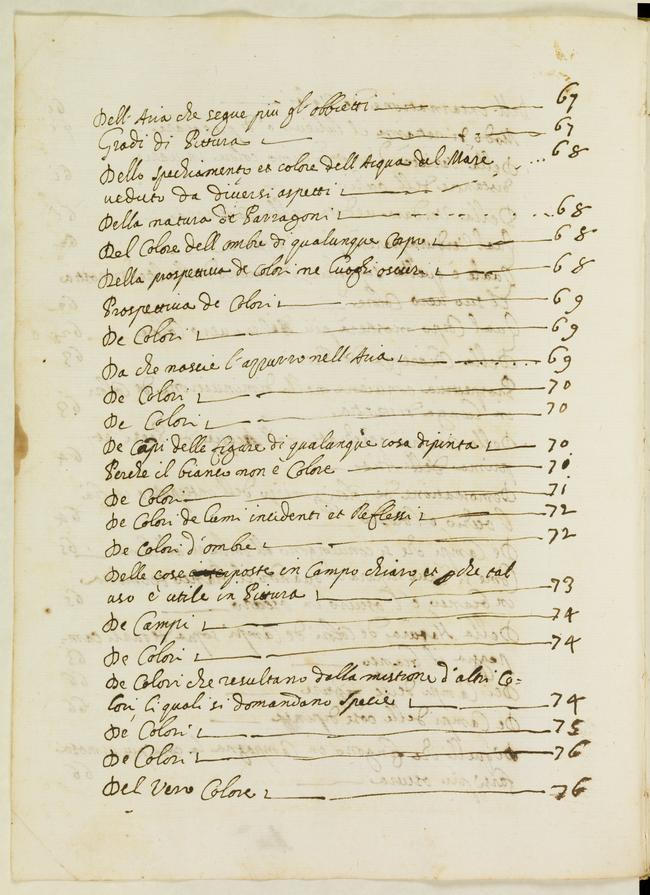 Dell'Aria che segue più gl'obbietti 67
Gradi di Pittura 67
Dello spechiamento et colore dell'Acqua del Mare
veduto da diversi aspetti 68
Della natura de Parragoni 68
Del Colore dell'ombre di qualunque Corpo 68
Della prospettiva de colori ne luoghi oscuri 68
Prospettiva de Colori 69
De Colori 69
Da che nascie l'azzurro nell'Aria 69
De Colori 70
De Colori 70
De capi delle figure di qualunque cosa dipinta 70
Perche il bianco non è Colore 70
De Colori 71
De Colori de lumi incidenti et Reflessi 72
De Colori d'ombre 72
Delle cose poste in Campo chiaro, et p che tal
uso è utile in Pittura 73
De Campi 74
De Colori 74
De Colori che resultano dalla mistione d'altri Co=
lori, li quali si domandano specie 74
De Colori 75
De Colori 76
Del Vero Colore 76